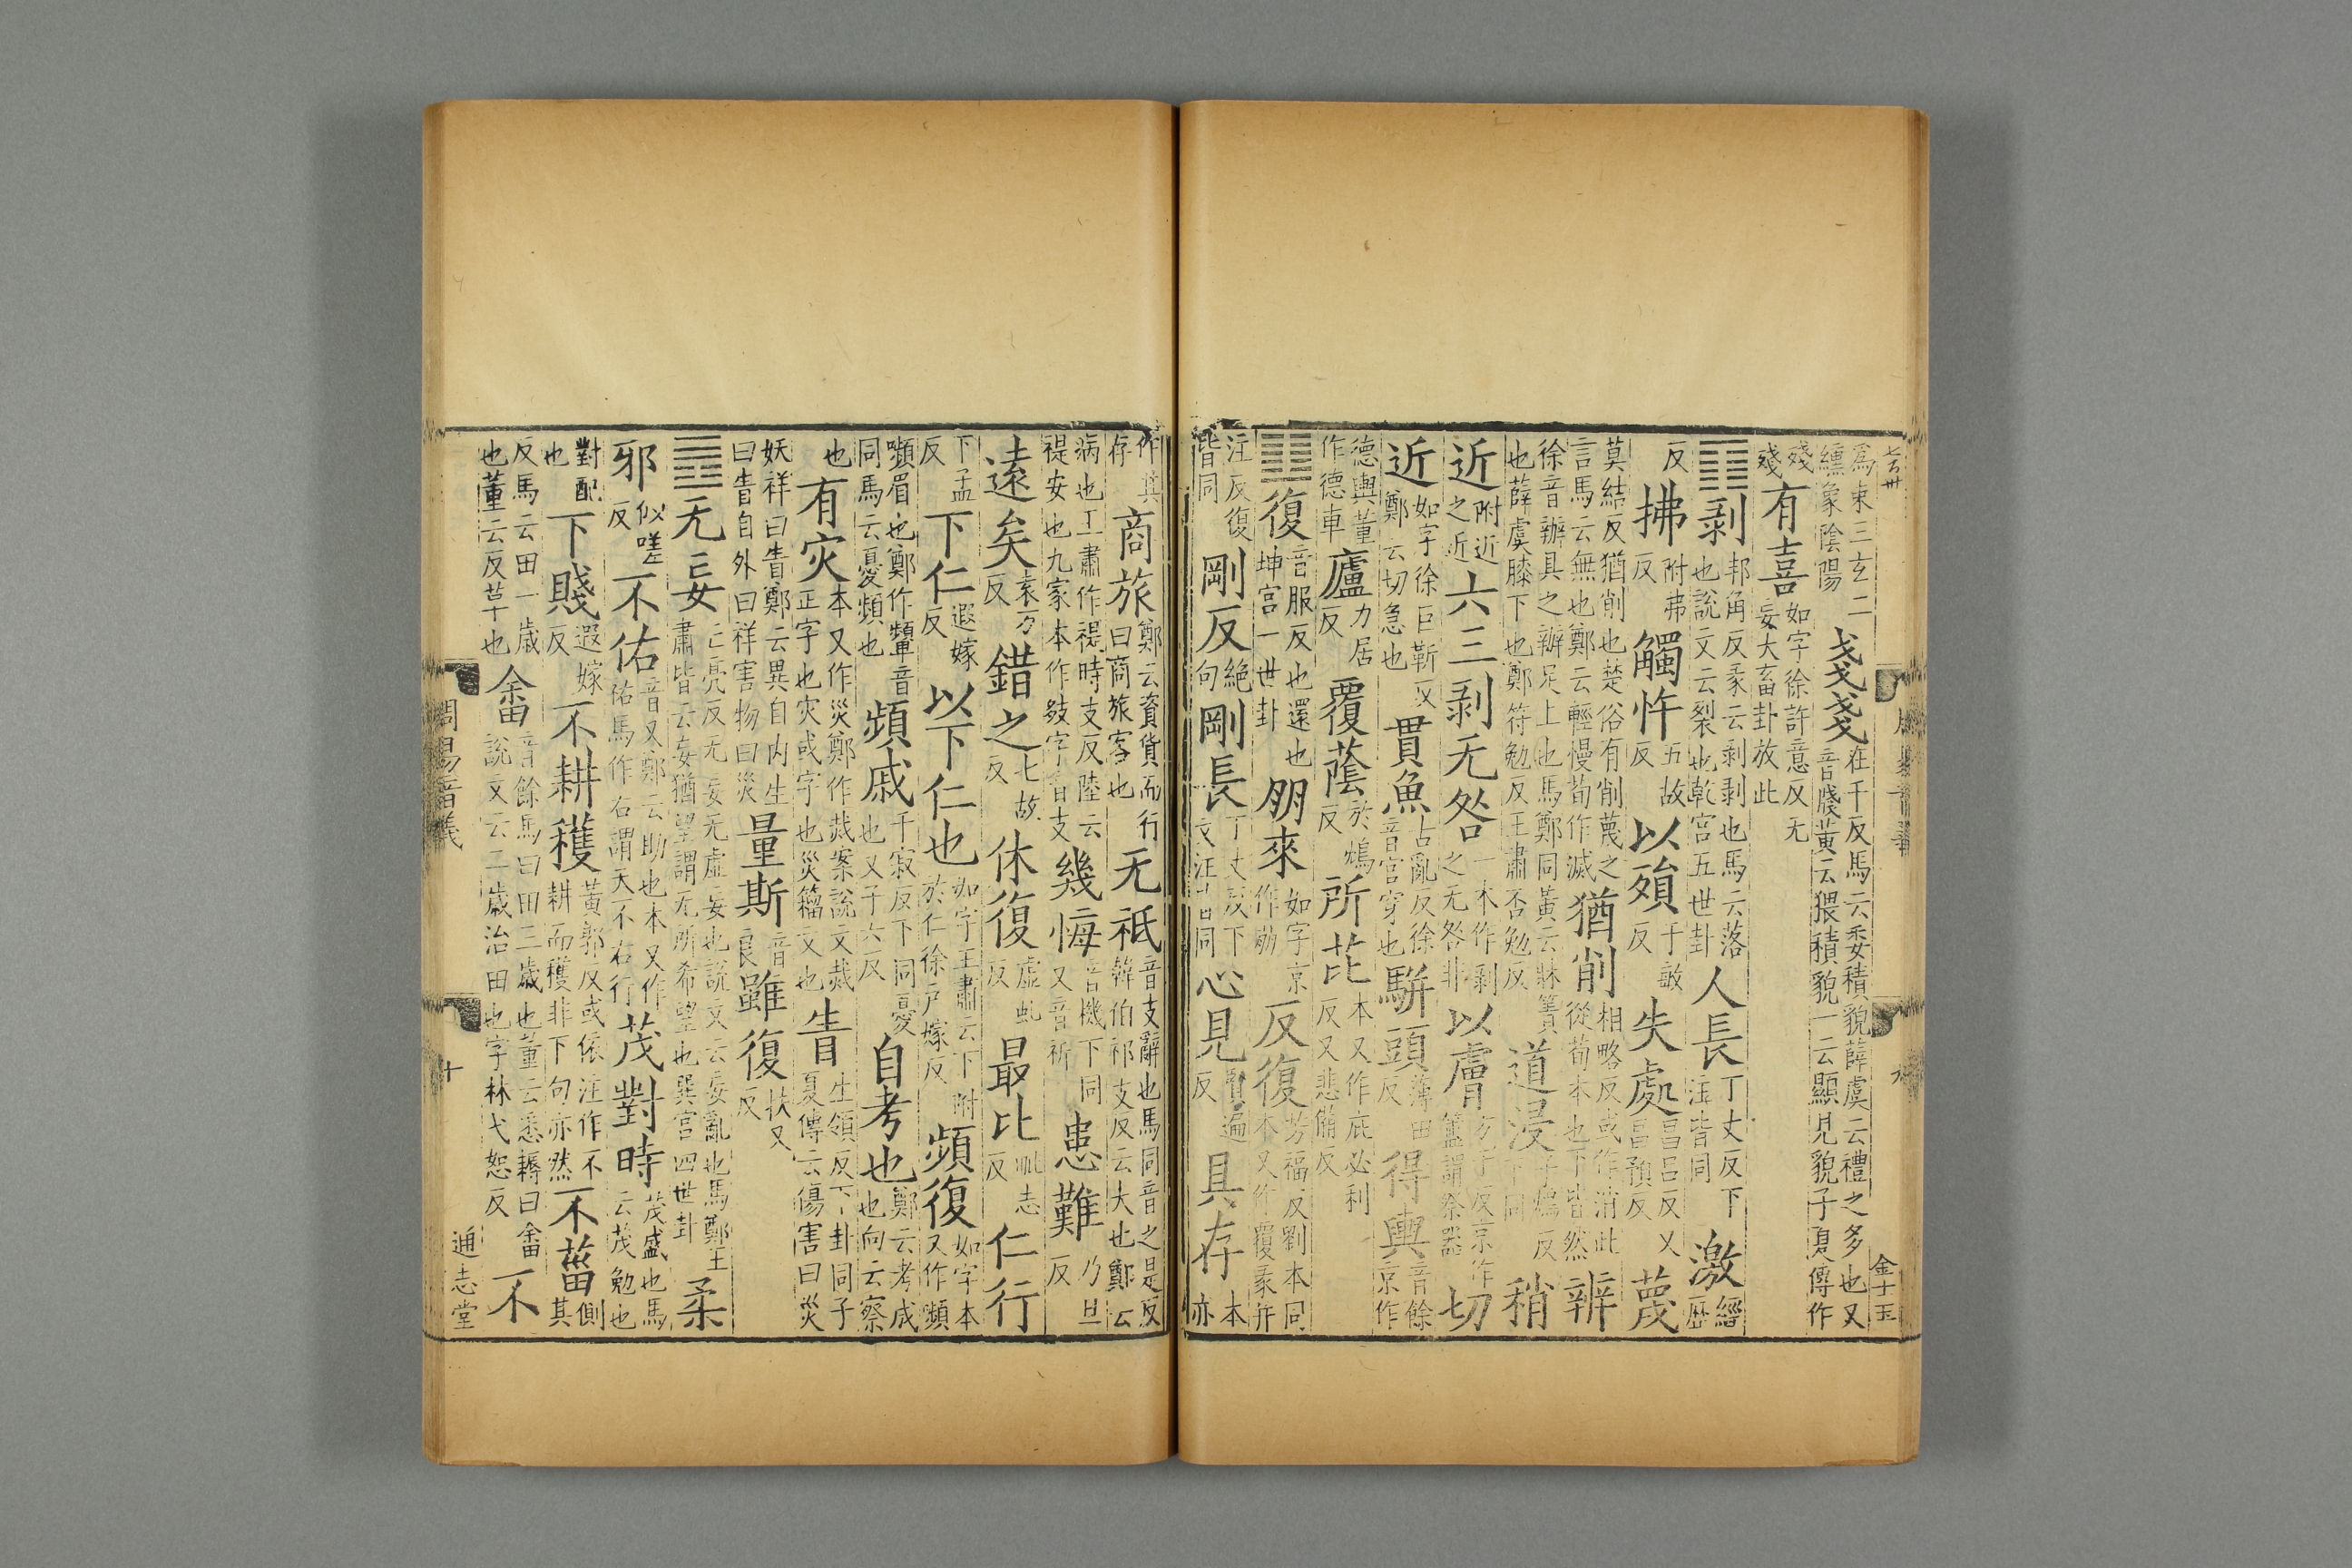 為束三玄二纁象陰陽 戔戔 在千反馬云委積貌薛虞云禮之多也又音牋黃云猥積貌一云顯見貌子夏傳作
殘殘 有喜 如字徐許意反无妄大畜卦放此
䷖剥 邦角反彖云剥剥也馬云落也說文云裂也乾宮五世卦 人長 丁丈反下注皆同 激 經歷
反 拂 附弗反 觸忤 五故反 以殞 于敏反 失處 昌呂反又昌預反 蔑
莫結反猶削也楚俗有削蔑之言馬云無也鄭云輕慢荀作滅 猶削 相略反或作消此從荀本也下皆然 辨
徐音辦具之辦足上也馬鄭同黃云牀簀也薛虞膝下也鄭符勉反王肅否勉反 道浸 子鴆反下同 稍
近 附近之近 六三剥无咎 一本作剥之无咎非 以膚 方于反京作簠謂祭器 切
近 如字徐巨靳反鄭云切急也 貫魚 古亂反徐音官穿也 騈頭 薄田反 得輿 音餘京作
德輿董作德車 廬 力居反 覆蔭 於鴆反 所芘 本又作庇必利反又悲備反
䷗復 音服反也還也坤宮一世卦 朋來 如字京作崩 反復 芳福反劉本同本又作覆彖并
注反復皆同 剛反 絕句 剛長 丁丈反下文注皆同 心見 賢遍反 具存 本亦
金十五
作其存 商旅 鄭云資貨而行曰商旅客也 无祗 音支辭也馬同音之是反韓伯祁支反云大也鄭云
病也王肅作禔時支反陸云禔安也九家本作𢻱字音支 幾悔 音機下同又音祈 患難 乃旦反
遠矣 袁万反 錯之 七故反 休復 虛虬反 最比 毗志反 仁行
下孟反 下仁 遐嫁反 以下仁也 如字王肅云下附於仁徐戶嫁反 頻復 如字本又作嚬
嚬眉也鄭作顰音同馬云憂頻也 頻戚 千寂反下同憂也又子六反 自考也 鄭云考成也向云察
也 有灾 本又作災鄭作烖案說文烖正字也灾或字也災籀文也 眚 生領反下卦同子夏傳云傷害曰災
妖祥曰眚鄭云異自內生曰眚自外曰祥害物曰災 量斯 音良 雖復 扶又反
䷘无妄 亡亮反无妄无虛妄也說文云妄亂也馬鄭王肅皆云妄猶望謂无所希望也巽宮四世卦 柔
邪 似嗟反 不佑 音又鄭云助也本又作祐馬作右謂天不右行 茂對時 茂盛也馬云茂勉也
對配也 下賤 遐嫁反 不耕穫 黃郭反或依注作不耕而穫非下句亦然 不菑 側其
反馬云田一歲也董云反草也 畬 音餘馬曰田三歲也董云悉耨曰畬說文云二歲治田也字林弋恕反 不
周易音義
十
通志堂